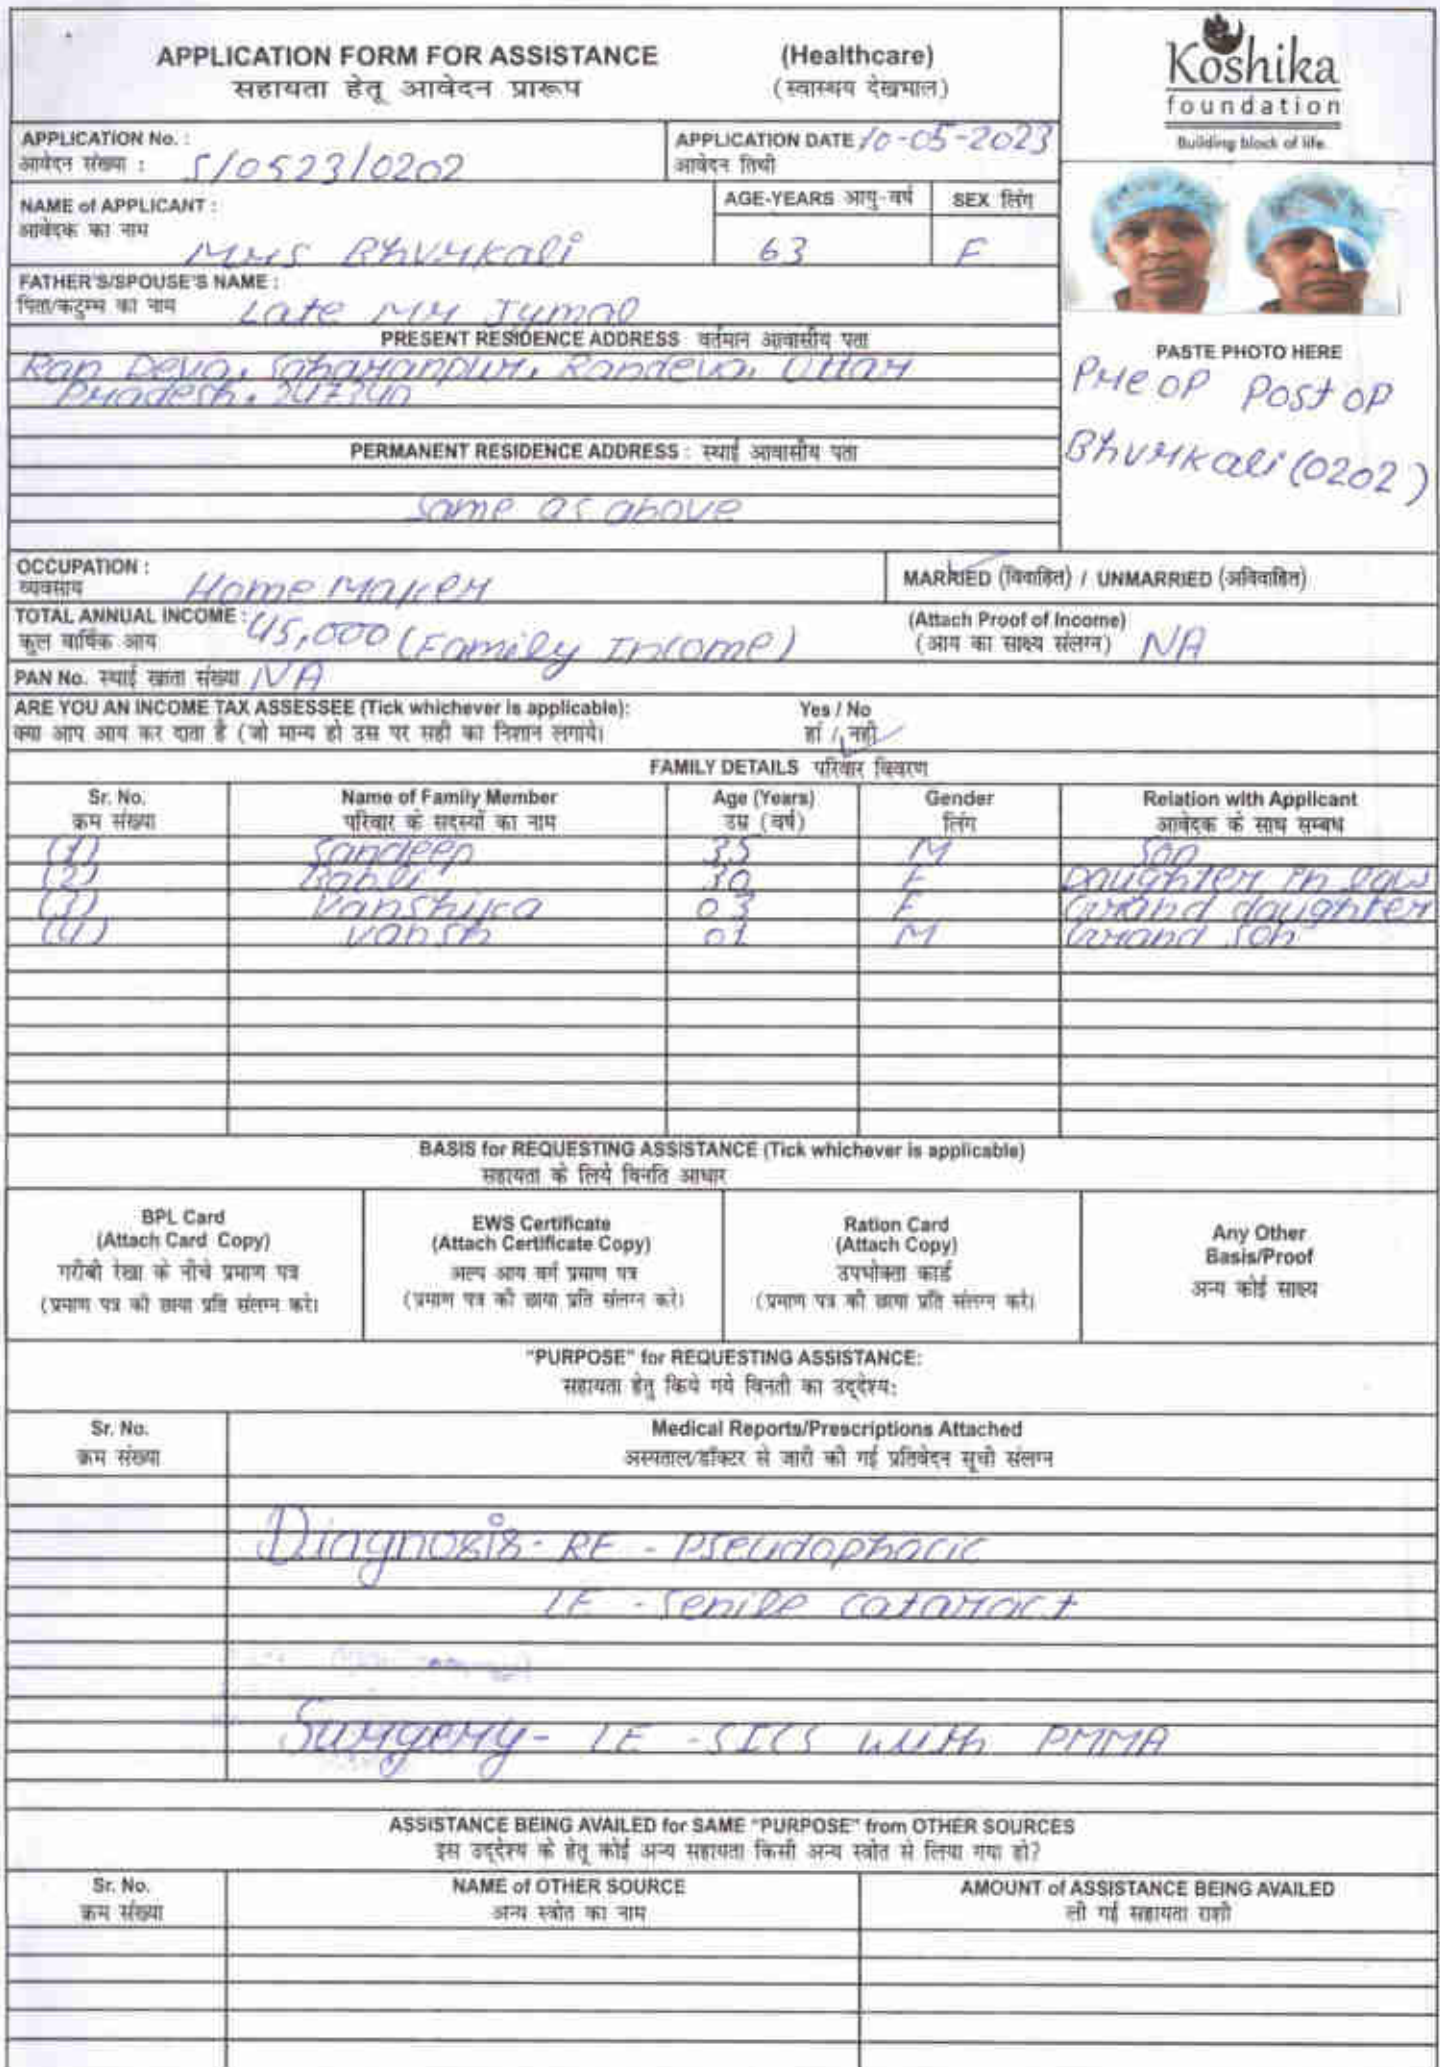 APPLICATION FORM FOR ASSISTANCE (Healthcare)
सहायता हेतू आवेदन प्रारूप (स्वास्थय देखभाल)
Koshika
foundation
Building block of life.
APPLICATION No. :
आवेदन संख्या : S/0523/0202
APPLICATION DATE 10-05-2023
आवेदन तिथी
NAME of APPLICANT :
आवेदक का नाम Mrs Bhurkali
AGE-YEARS आयु-वर्ष 63
SEX लिंग F
FATHER'S/SPOUSE'S NAME :
पिता/कटुम्ब का नाम Late Mr Jymal
PRESENT RESIDENCE ADDRESS वर्तमान आवासीय पता
Ran Deva, Saharanpur, Randeva, Uttar
Pradesh. 247340
PASTE PHOTO HERE
Pre op Post op
Bhurkali (0202)
PERMANENT RESIDENCE ADDRESS : स्थाई आवासीय पता
Same as above
OCCUPATION :
व्यवसाय Home Maker
MARRIED (विवाहित) / UNMARRIED (अविवाहित)
TOTAL ANNUAL INCOME :
कुल वार्षिक आय 45,000 (Family Income)
(Attach Proof of Income)
(आय का साक्ष्य संलग्न) NA
PAN No. स्थाई खाता संख्या NA
ARE YOU AN INCOME TAX ASSESSEE (Tick whichever is applicable): Yes / No
क्या आप आय कर दाता है (जो मान्य हो उस पर सही का निशान लगाये। हां / नही
FAMILY DETAILS परिवार विवरण
Sr. No. Name of Family Member Age (Years) Gender Relation with Applicant
क्रम संख्या परिवार के सदस्यों का नाम उम्र (वर्ष) लिंग आवेदक के साथ सम्बध
(1) Sandeep 35 M Son
(2) 30 F Daughter in law
(3) Vanshika 03 F Grand daughter
(4) Vansh 01 M Grand Son
BASIS for REQUESTING ASSISTANCE (Tick whichever is applicable)
सहायता के लिये विनति आधार
BPL Card
(Attach Card Copy)
गरीबी रेखा के नीचे प्रमाण पत्र
(प्रमाण पत्र की छाया प्रति संलग्न करे।
EWS Certificate
(Attach Certificate Copy)
अल्प आय वर्ग प्रमाण पत्र
(प्रमाण पत्र की छाया प्रति संलग्न करे।
Ration Card
(Attach Copy)
उपभोक्ता कार्ड
(प्रमाण पत्र की छाया प्रति संलग्न करे।
Any Other
Basis/Proof
अन्य कोई साक्ष्य
"PURPOSE" for REQUESTING ASSISTANCE:
सहायता हेतु किये गये विनती का उद्देश्य:
Sr. No. Medical Reports/Prescriptions Attached
क्रम संख्या अस्पताल/डॉक्टर से जारी की गई प्रतिवेदन सूची संलग्न
Diagnosis- RE - Pseudophacic
LE - Senile Cataract
Surgery- LE - SICS with PMMA
ASSISTANCE BEING AVAILED for SAME "PURPOSE" from OTHER SOURCES
इस उद्देश्य के हेतू कोई अन्य सहायता किसी अन्य स्त्रोत से लिया गया हो?
Sr. No. NAME of OTHER SOURCE AMOUNT of ASSISTANCE BEING AVAILED
क्रम संख्या अन्य स्त्रोत का नाम ली गई सहायता राशी